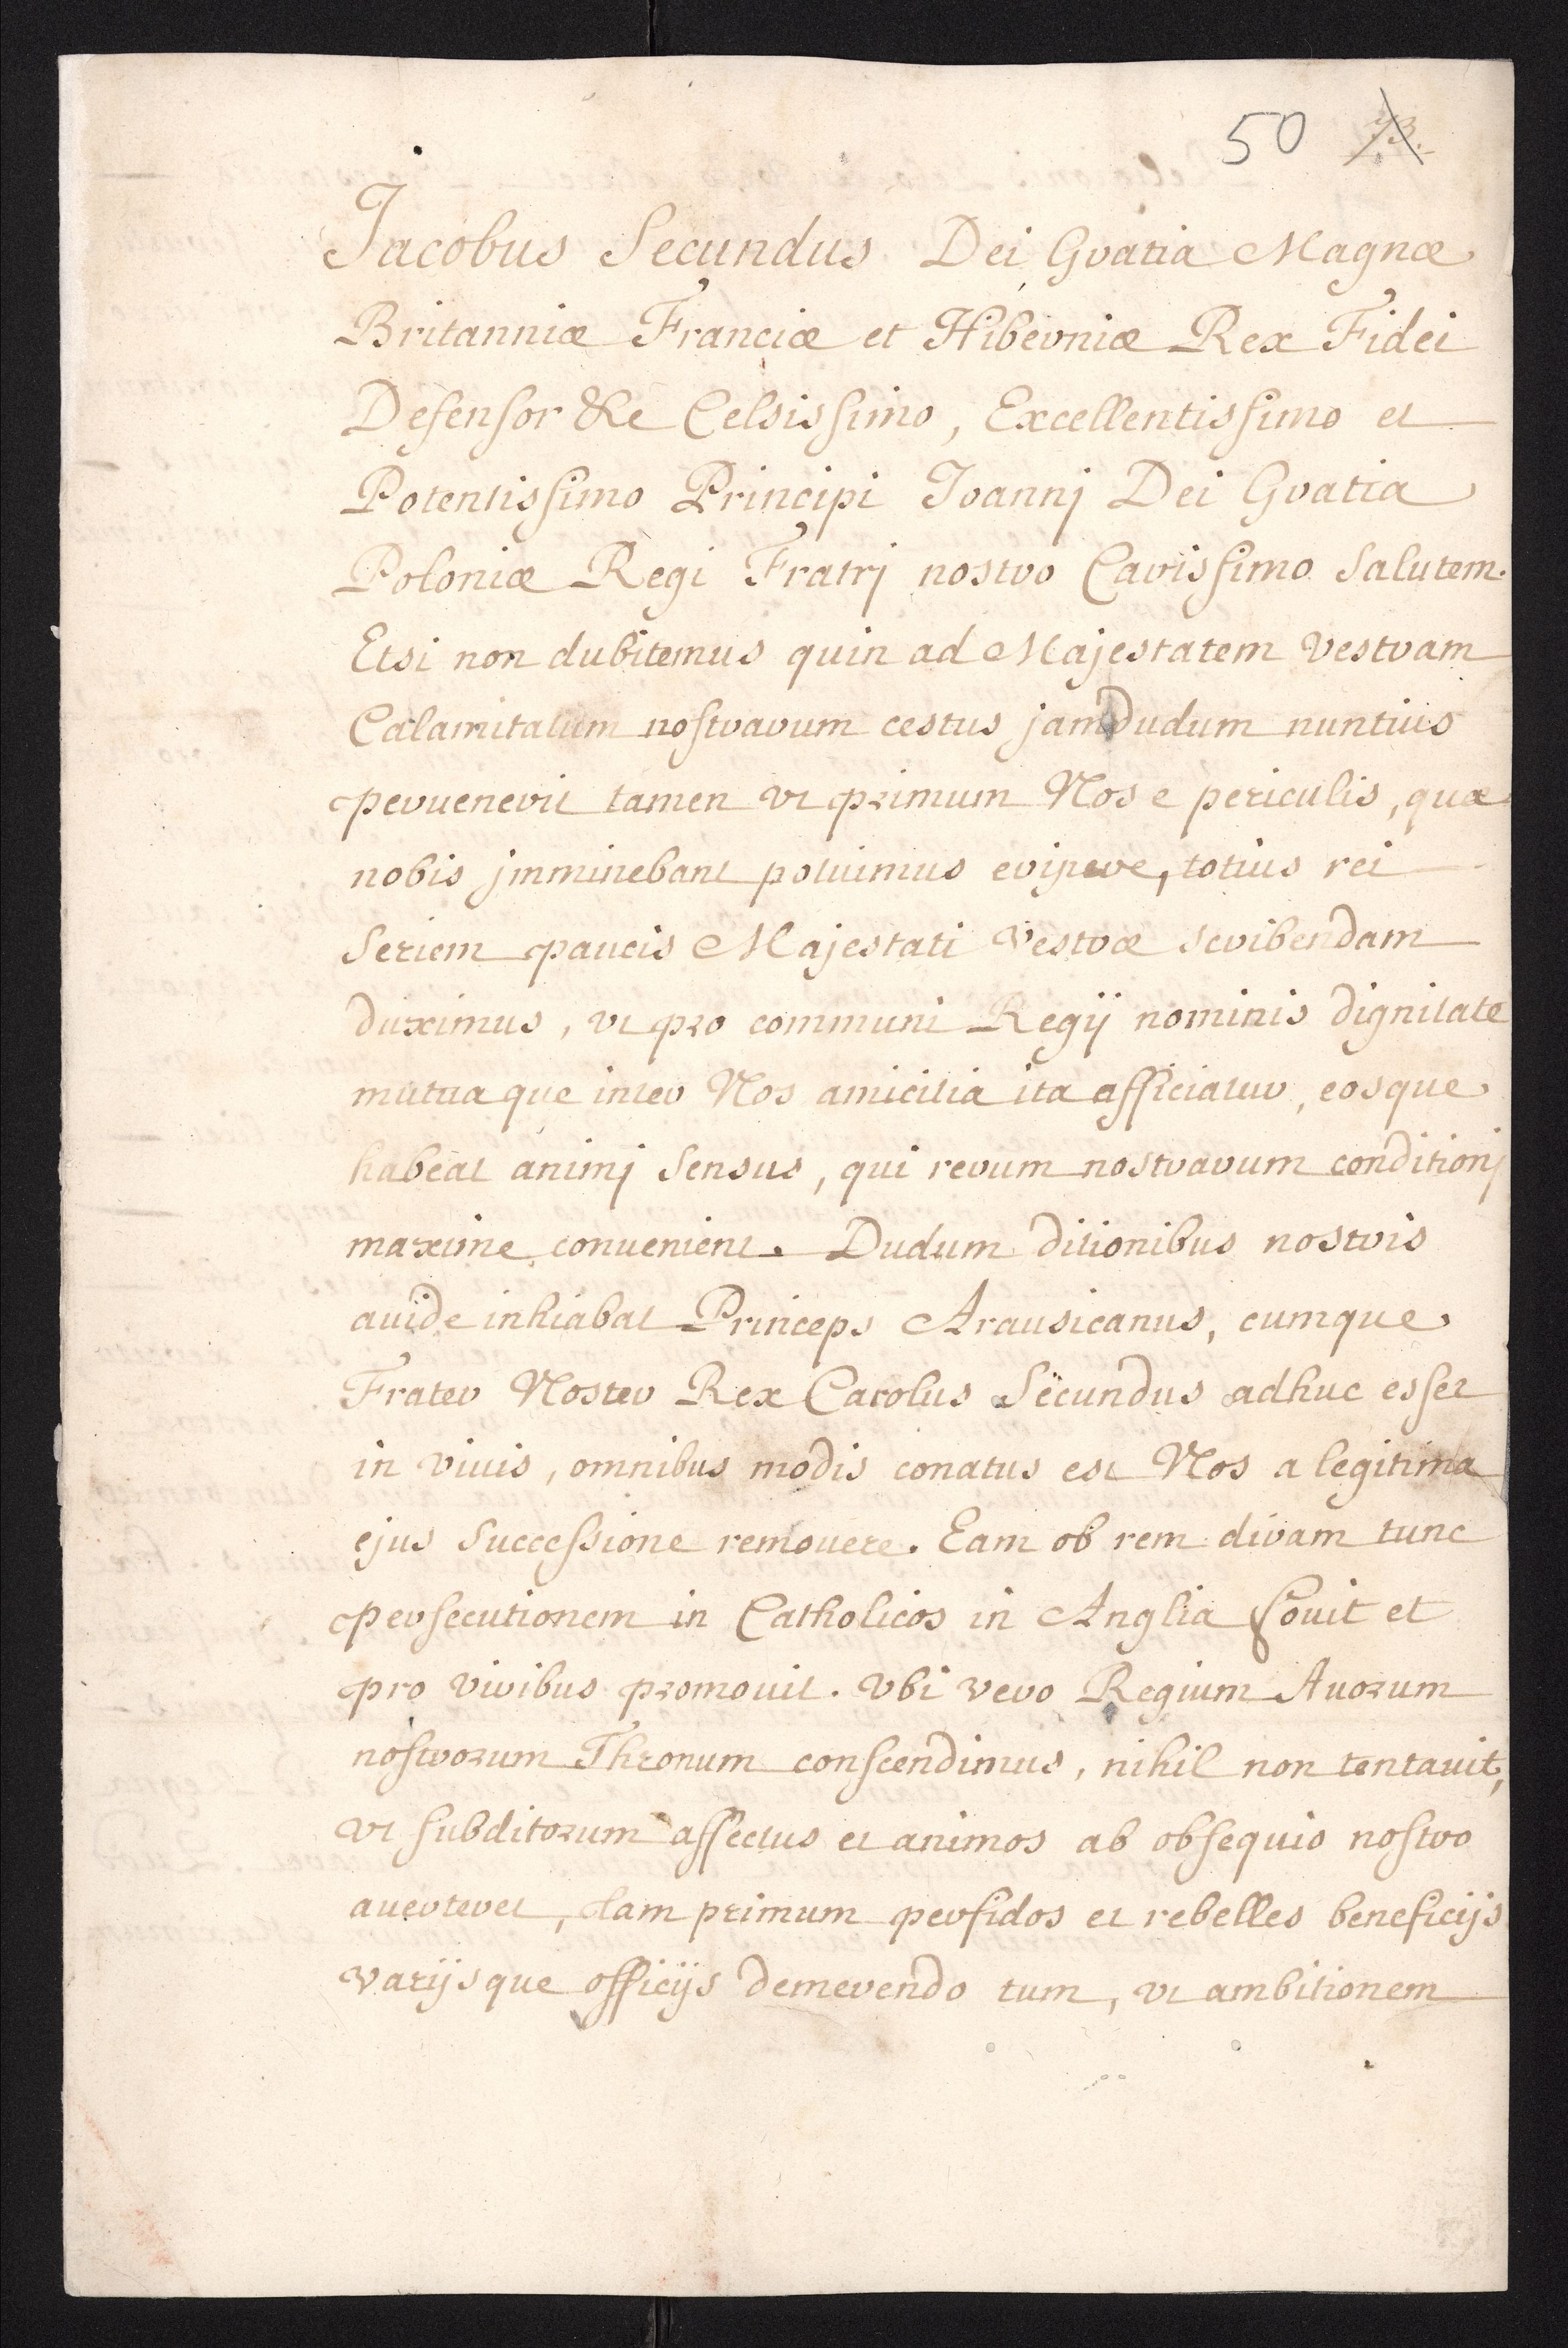 50 73.
Jacobus Secundus Dei Gratia Magnæ
Britanniæ Franciæ et Hiberniæ Rex Fidei
Defensor &c Celsissimo, Excellentissimo et
Potentissimo Principi Joannj Dei Gratia
Poloniæ Regi Fratrj nostro Carissimo Salutem.
Etsi non dubitemus quin ad Majestatem Vestram
Calamitatum nostrarum æstus jamdudum nuntius
peruenerit tamen vt primum Nos e periculis, quæ
nobis jmminebant potuimus eripere, totius rei
Seriem paucis Majestati Vestræ scribendam
duximus, vt pro communi Regij nominis dignitate
mutuaque inter Nos amicitia ita afficiatur, eosque
habeat animj Sensus, qui rerum nostrarum conditionj
maxime conuenient. Dudum ditionibus nostris
auide inhiabat Princeps Arausicanus, cumque
Frater Noster Rex Carolus Secundus adhuc esset
in viuis, omnibus modis conatus est Nos a legitima
ejus Successione remouere. Eam ob rem diram tunc
persecutionem in Catholicos in Anglia fouit et
pro viribus promouit. Vbi vero Regium Auorum
nostrorum Thronum conscendimus, nihil non tentauit,
vt subditorum affectus et animos ab obsequio nostro
auerteret, tam primum perfidos et rebelles beneficijs
varijsque officijs demerendo tum, vt ambitionem